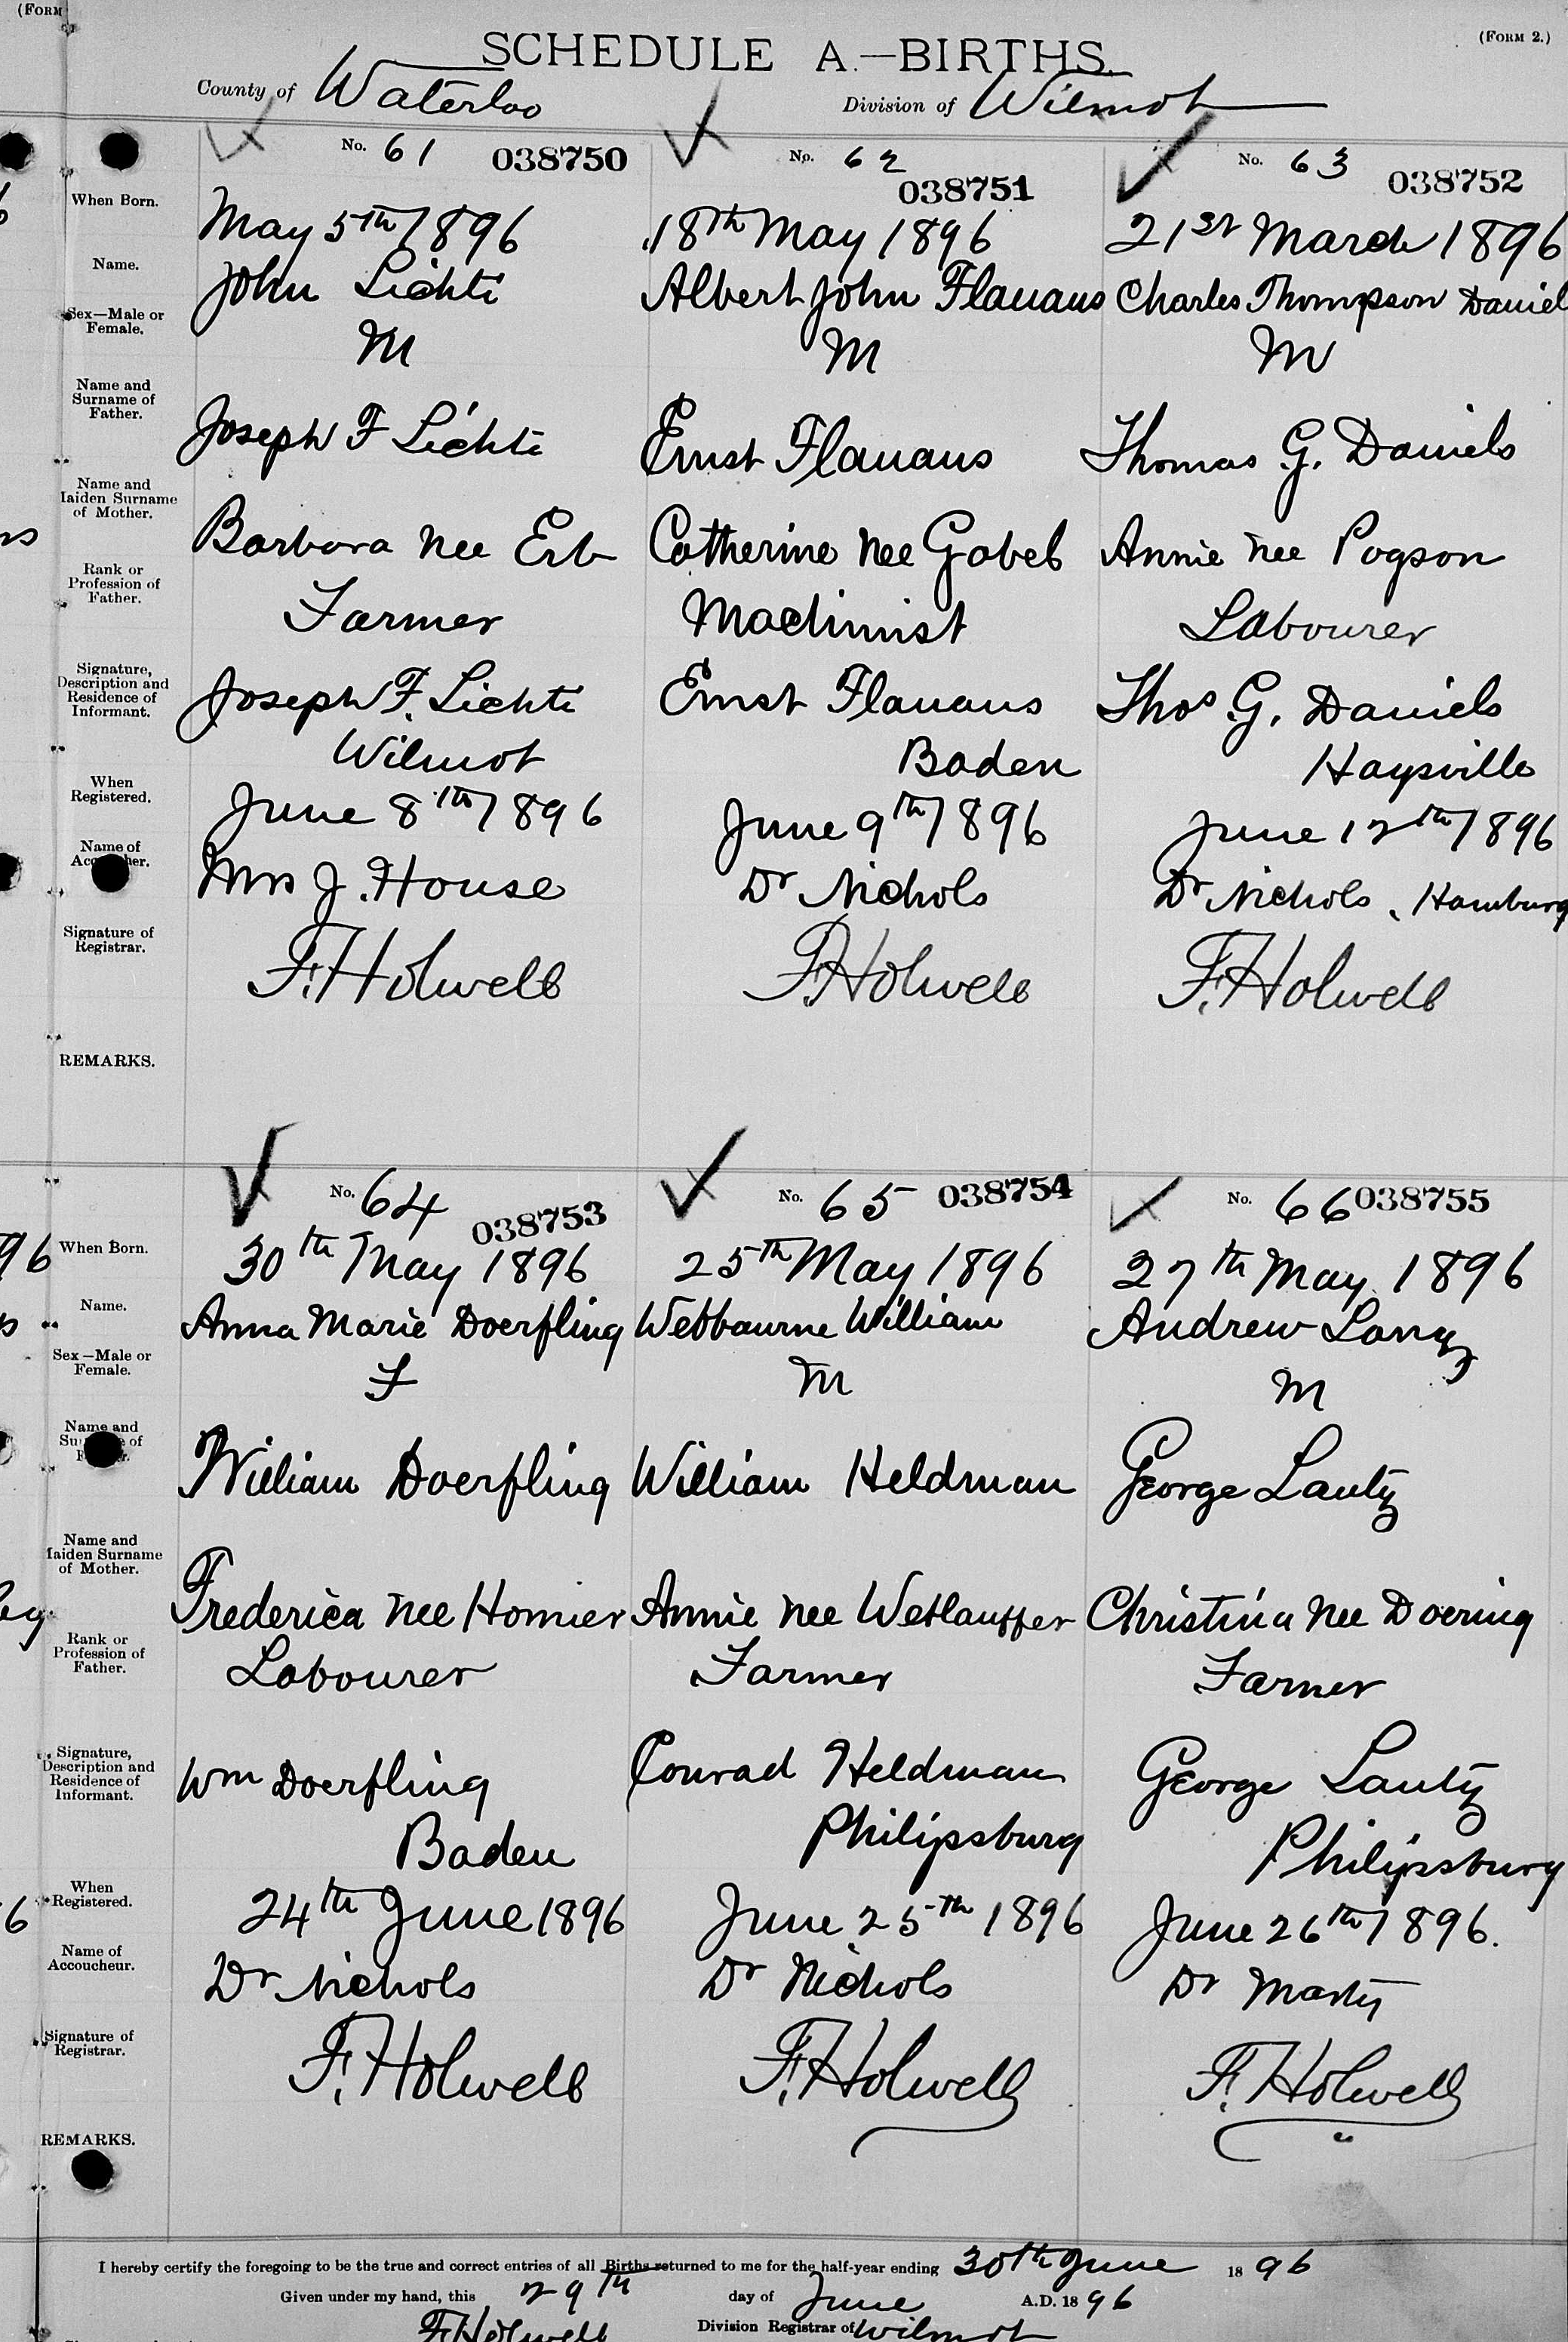 (FORM
(FORM 2.)
SCHEDULE A.—BIRTHS.
County of Waterloo
Division of Wilmot
No. 61 038750
When Born.
May 5th 1896
Name.
John Lichti
Sex—Male or Female.
M
Name and Surname of Father.
Joseph F Lichti
Name and Maiden Surname of Mother.
Barbara nee Erb
Rank or Profession of Father.
Farmer
Signature, Description and Residence of Informant.
Joseph F. Lichti
Wilmot
When Registered.
June 8th 1896
Name of
Mrs J. House
Signature of Registrar.
F. Holwell
REMARKS.
No. 62
038751
18th May 1896
Albert John Flauaus
M
Ernst Flauaus
Catherine nee Gabel
Machinist
Ernst Flauaus
Baden
June 9th 1896
Dr Nichols
F. Holwell
No. 63 038752
21st March 1896
Charles Thompson Daniel
M
Thomas G. Daniels
Annie nee Pogson
Labourer
Thos G. Daniels
Haysville
June 12th 1896
Dr Nichols, Hamburg
F. Holwell
No. 64
038753
When Born.
30th May 1896
Name.
Anna Marie Doerfling
Sex—Male or Female.
F
Name and
William Doerfling
Name and Maiden Surname of Mother.
Frederica nee Homier
Rank or Profession of Father.
Labourer
Signature, Description and Residence of Informant.
Wm Doerfling
Baden
When Registered.
24th June 1896
Name of Accoucheur.
Dr Nichols
Signature of Registrar.
F. Holwell
REMARKS.
No. 65 038754
25th May 1896
Welbourne William
M
William Heldman
Annie nee Wetlauffer
Farmer
Conrad Heldman
Philipsburg
June 25th 1896
Dr Nichols
F. Holwell
No. 66 038755
27th May 1896
Andrew Lantz
M
George Lautz
Christina nee Doering
Farmer
George Lautz
Philipsburg
June 26th 1896.
Dr Marty
F. Holwell
I hereby certify the foregoing to be the true and correct entries of all Births returned to me for the half-year ending 30th June 1896
Given under my hand, this 29th day of June A.D. 1896
F. Holwell Division Registrar of Wilmot